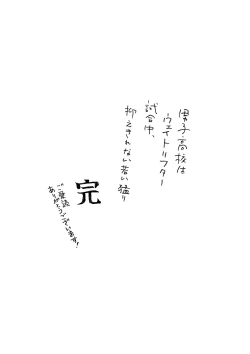 男子高校は
ウェイトリフター
試合中、
抑えきれない若い猛り
完
ご愛読
ありがとうございます!